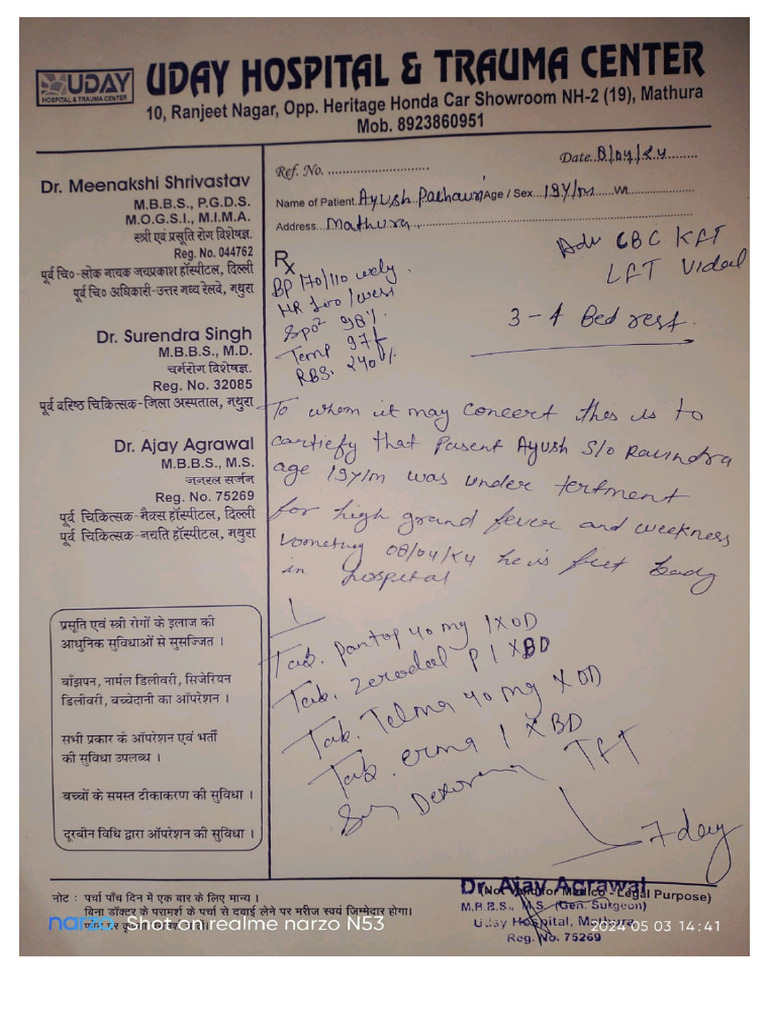 UDAY
HOSPITAL & TRAUMA CENTER
UDAY HOSPITAL & TRAUMA CENTER
10, Ranjeet Nagar, Opp. Heritage Honda Car Showroom NH-2 (19), Mathura
Mob. 8923860951
Dr. Meenakshi Shrivastav
M.B.B.S., P.G.D.S.
M.O.G.S.I., M.I.M.A.
स्त्री एवं प्रसूति रोग विशेषज्ञ.
Reg. No. 044762
पूर्व चि०-लोक नायक जयप्रकाश हॉस्पीटल, दिल्ली
पूर्व चि० अधिकारी-उत्तर मध्य रेलवे, मथुरा
Dr. Surendra Singh
M.B.B.S., M.D.
चर्मरोग विशेषज्ञ.
Reg. No. 32085
पूर्व वरिष्ठ चिकित्सक-जिला अस्पताल, मथुरा
Dr. Ajay Agrawal
M.B.B.S., M.S.
जनरल सर्जन
Reg. No. 75269
पूर्व चिकित्सक-मैक्स हॉस्पीटल, दिल्ली
पूर्व चिकित्सक-नयति हॉस्पीटल, मथुरा
प्रसूति एवं स्त्री रोगों के इलाज की
आधुनिक सुविधाओं से सुसज्जित ।
बाँझपन, नार्मल डिलीवरी, सिजेरियन
डिलीवरी, बच्चेदानी का ऑपरेशन ।
सभी प्रकार के ऑपरेशन एवं भर्ती
की सुविधा उपलब्ध ।
बच्चों के समस्त टीकाकरण की सुविधा ।
दूरबीन विधि द्वारा ऑपरेशन की सुविधा ।
Ref. No. Date. 8/04/24
Name of Patient. Ayush Pachauri Age / Sex. 19Y/m Wt.
Address. Mathura
Adv CBC KFT
LFT Vidal
Rx
BP 170/110
HR 100/
Spo2 98%
Temp 97f
RBS. 240%
3-4 Bed rest.
To whom it may concert thes is to
cartiefy that Pasent Ayush S/o Ravindra
age 19y/m was under tertment
for high grand fever and weekness
vometing 08/04/24 he is
in hospital
Tab. pantop 40 mg 1XOD
Tab. zerodol P 1 XBD
Tab. Telma 40 mg XOD
Tab. 1 XBD
7 day
Dr. Ajay Agrawal
(Not Valid for Medico - Legal Purpose)
M.B.B.S., M.S. (Gen. Surgeon)
Uday Hospital, Mathura
Reg. No. 75269
नोट : पर्चा पाँच दिन में एक बार के लिए मान्य ।
बिना डॉक्टर के परामर्श के पर्चा से दवाई लेने पर मरीज स्वयं जिम्मेदार होगा।
narzo Shot on realme narzo N53
2024 05 03 14:41